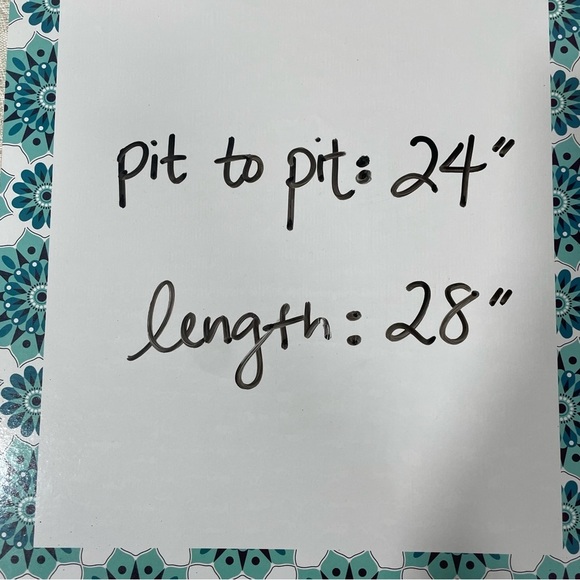 pit to pit: 24"
length: 28"